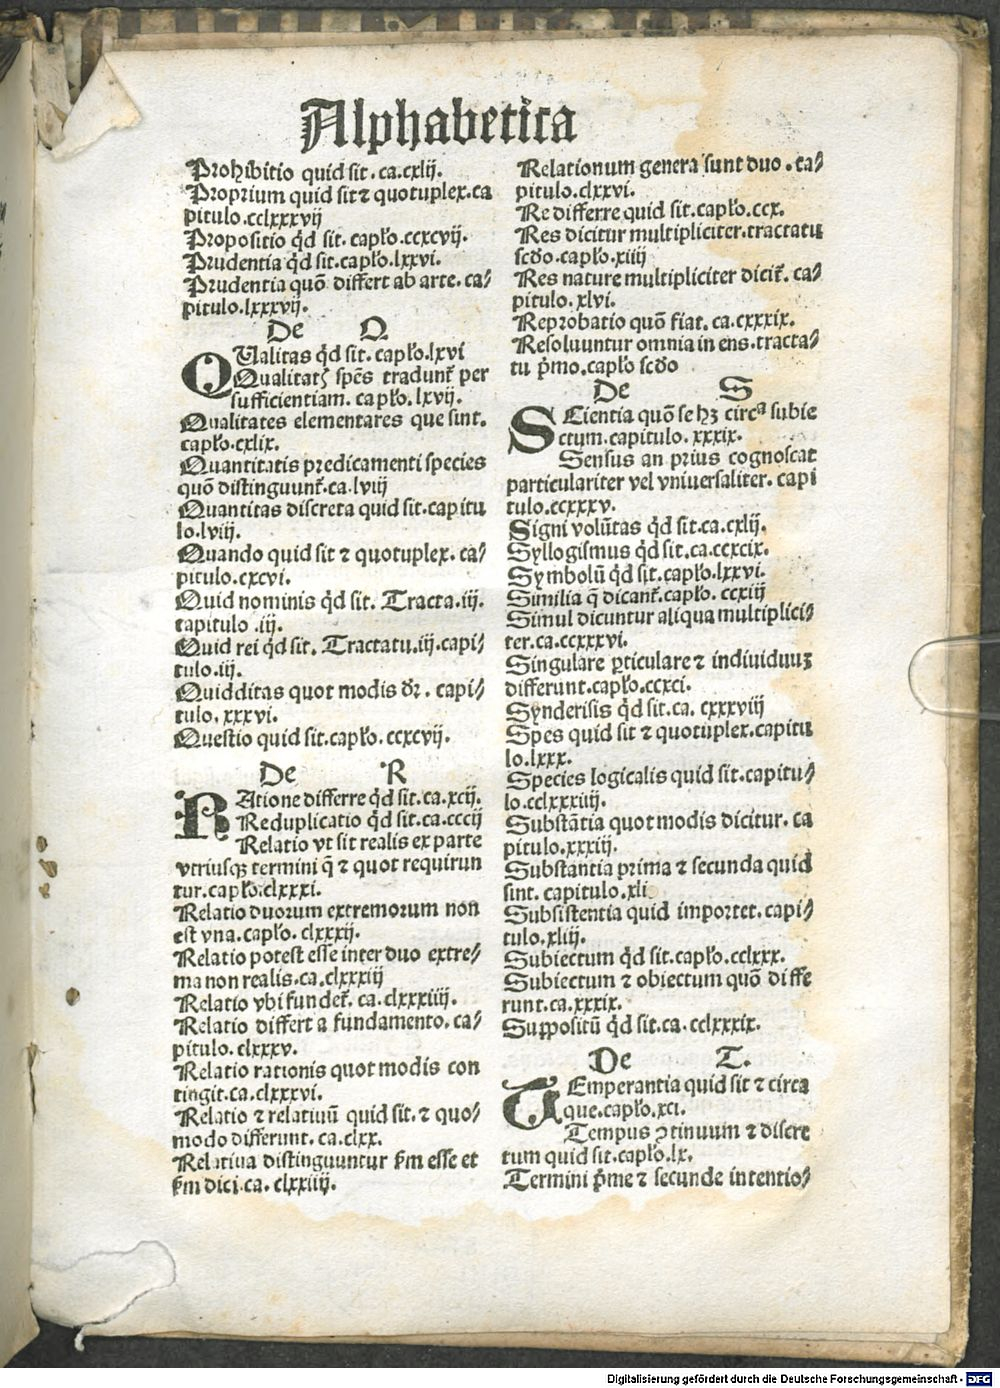 Alphabetica
Prohibitio quid sit . ca.cxlij.
Proprium quid sit ⁊ quotuplex.ca
pitulo.cclxxxvij
Propositio qd̄ sit. capl̓o.ccxcvij.
Prudentia qd̄ sit.capl̓o.lxxvi.
Prudentia quō differt ab arte. ca⸗
pitulo.lxxxvij.
De Q
QUalitas qd̄ sit. capl̓o.lxvi
Qualitatꝭ spēs tradunt᷑ per
sufficientiam. capl̓o. lxvij.
Qualitates elementares que sint.
capl̓o.cxlix.
Quantitatis predicamenti species
quō distinguunt᷑.ca.lviij
Quantitas discreta quid sit.capitu
lo.lviij.
Quando quid sit ⁊ quotuplex. ca⸗
pitulo.cxcvi.
Quid nominis qd̄ sit. Tracta.iij.
capitulo .iij.
Quid rei qd̄ sit. Tractatu.iij.capi⸗
tulo.iij.
Quidditas quot modis dr̄. capi⸗
tulo. xxxvi.
Questio quid sit.capl̓o. ccxcvij.
De R
RAtione differre qd̄ sit.ca.xcij.
Reduplicatio qd̄ sit.ca.cccij
Relatio vt sit realis ex parte
vtriusqꝫ termini q̄ ⁊ quot requirun
tur.capl̓o.clxxxi.
Relatio duorum extremorum non
est vna.capl̓o. clxxxij.
Relatio potest esse inter duo extre⸗
ma non realis.ca.clxxxiij
Relatio vbi fundet᷑. ca.clxxxiiij.
Relatio differt a fundamento. ca⸗
pitulo. clxxxv.
Relatio rationis quot modis con
tingit.ca.clxxxvi.
Relatio ⁊ relatiuū quid sit. ⁊ quo⸗
modo differunt. ca.clxx.
Relatiua distinguuntur ẜm esse et
ẜm dici.ca. clxxiiij.
Relationum genera sunt duo . ca⸗
pitulo.clxxvi.
Re differre quid sit.capl̓o.ccx.
Res dicitur multipliciter.tractatu
scd̓o.capl̓o.xiiij
Res nature multipliciter dicit᷑. ca⸗
pitulo. xlvi.
Reprobatio quō fiat. ca.cxxxix.
Resoluuntur omnia in ens.tracta⸗
tu p̄mo.capl̓o scd̓o
De S
SCientia quō se hꝫ circᵃ subie
ctum.capitulo. xxxix.
Sensus an prius cognoscat
particulariter vel vniuersaliter. capi
tulo.ccxxxv.
Signi volūtas qd̄ sit.ca.cxlij.
Syllogismus qd̄ sit.ca.ccxcix.
Symbolū qd̄ sit.capl̓o.lxxvi.
Similia q̄ dicant᷑.capl̓o. ccxiij
Simul dicuntur aliqua multiplici⸗
ter.ca.ccxxxvi.
Singulare ꝑticulare ⁊ indiuiduuꝫ
differunt.capl̓o.ccxci.
Synderisis qd̄ sit.ca. cxxxviij
Spes quid sit ⁊ quotuplex.capitu
lo.lxxx.
Species logicalis quid sit.capitu⸗
lo.cclxxxiiij.
Substātia quot modis dicitur. ca
pitulo.xxxiij.
Substantia prima ⁊ secunda quid
sint. capitulo.xli
Subsistentia quid importet. capi⸗
tulo.xliij.
Subiectum qd̄ sit.capl̓o.cclxxx.
Subiectum ⁊ obiectum quō diffe
runt.ca.xxxix.
Suppositū qd̄ sit.ca.cclxxxix.
De T.
TEmperantia quid sit ⁊ circa
que.capl̓o.xci.
Tempus ꝯtinuum ⁊ discre
tum quid sit.capl̓o.lx.
Termini p̄me ⁊ secunde intentio⸗
Digitalisierung gefördert durch die Deutsche Forschungsgemeinschaft - DFG